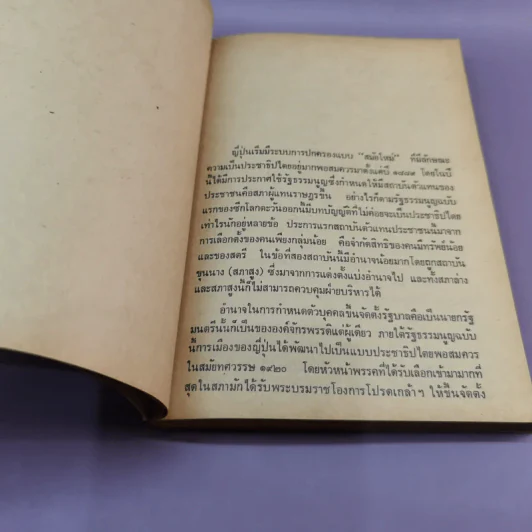 ญี่ปุ่นเริ่มมีระบบการปกครองแบบ "สมัยใหม่" ที่มีลักษณะ
ความเป็นประชาธิปไตยอยู่มากพอสมควรมาตั้งแต่ปี ๑๘๘๙ โดยในปี
นี้ได้มีการประกาศใช้รัฐธรรมนูญซึ่งกำหนดให้มีสถาบันตัวแทนของ
ประชาชนคือสภาผู้แทนราษฎรขึ้น อย่างไรก็ตามรัฐธรรมนูญฉบับ
แรกของซีกโลกตะวันออกนี้มีบทบัญญัติที่ไม่ค่อยจะเป็นประชาธิปไตย
เท่าไรนักอยู่หลายข้อ ประการแรกสถาบันตัวแทนประชาชนนี้มาจาก
การเลือกตั้งของคนเพียงกลุ่มน้อย คือจำกัดสิทธิของคนมีทรัพย์น้อย
และของสตรี ในข้อที่สองสถาบันนี้มีอำนาจน้อยมากโดยถูกสถาบัน
ขุนนาง (สภาสูง) ซึ่งมาจากการแต่งตั้งแบ่งอำนาจไป และทั้งสภาล่าง
และสภาสูงนี้ก็ไม่สามารถควบคุมฝ่ายบริหารได้
อำนาจในการกำหนดตัวบุคคลขึ้นจัดตั้งรัฐบาลคือเป็นนายกรัฐ
มนตรีนั้นก็เป็นขององค์จักรพรรดิแต่ผู้เดียว ภายใต้รัฐธรรมนูญฉบับ
นี้การเมืองของญี่ปุ่นได้พัฒนาไปเป็นแบบประชาธิปไตยพอสมควร
ในสมัยทศวรรษ ๑๙๒๐ โดยหัวหน้าพรรคที่ได้รับเลือกเข้ามามากที่
สุดในสภามักได้รับพระบรมราชโองการโปรดเกล้าฯ ให้ขึ้นจัดตั้ง